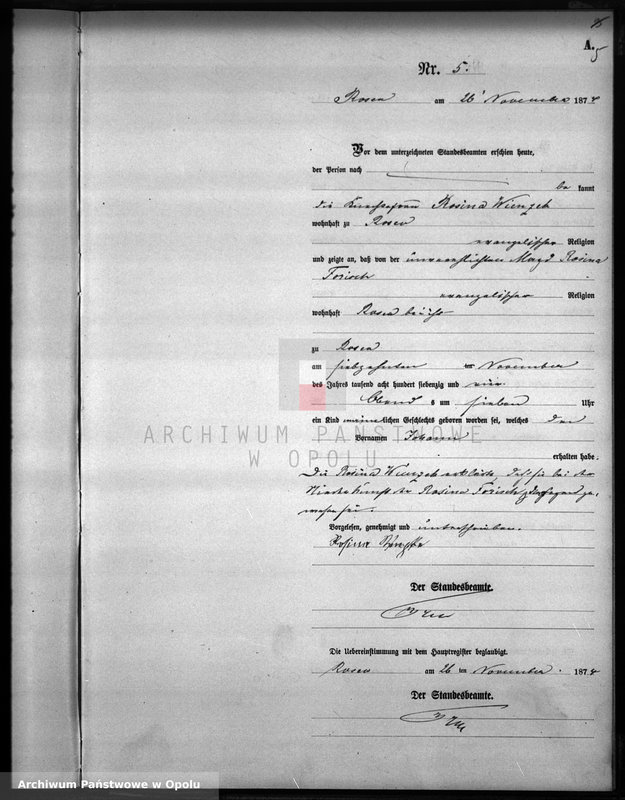 A.
5
Nr. 5.
Rosen am 26 November 1874
Vor dem unterzeichneten Standesbeamten erschien heute,
der Person nach
be kannt
die Rosina Wienzek
wohnhaft zu Rosen
evangelischer Religion
und zeigte an, daß von der unverehelichten Magd Rosina
evangelischer Religion
wohnhaft Rosen bei ihr
zu Rosen
am siebzehnten ten November
des Jahres tausend acht hundert siebenzig und vier
Abend s um sieben Uhr
ein Kind männlichen Geschlechts geboren worden sei, welches den
Vornamen Johann
erhalten habe.
Die Rosina Wienzek erklärte, daß sie bei der
Niederkunft der Rosina zugegen ge-
wesen sei.
Vorgelesen, genehmigt und unterschrieben.
Rosina
Der Standesbeamte.
Die Uebereinstimmung mit dem Hauptregister beglaubigt.
Rosen am 26 ten November. 1874
Der Standesbeamte.
ARCHIWUM PAŃSTWOWE
W OPOLU
Archiwum Państwowe w Opolu